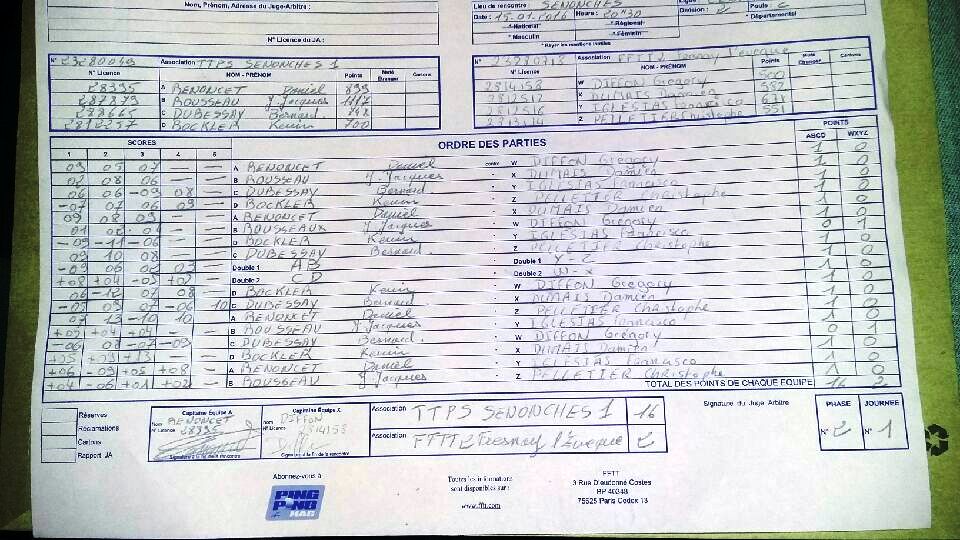 Nom, Prénom, Adresse du Juge-Arbitre :
N° Licence du JA :
Lieu de rencontre : SENONCHES
Date : 15.01.2016 Heure : 20H30
Division : 2 Poule : 2
*National* *Régional* *Départemental
*Masculin *Féminin
* Rayer les mentions inutiles
N° 23280049 Association TTPS SENONCHES 1
N° Licence NOM - PRÉNOM Points Carton
28395 A RENONCET Daniel 899
287379 B ROUSSEAU J. Jacques 1117
278665 C DUBESSAY Bernard
2812257 D BOCKLER Kevin 700
Association FFTT
N° Licence NOM - PRÉNOM Points Cartons
2814153 W DIFFON Grégory 500
2812517 X DUMAIS Damien 582
2812516 Y IGLESIAS Francisco 631
2813014 Z PELLETIER Christophe 551
SCORES ORDRE DES PARTIES POINTS
1 2 3 4 5 ABCD WXYZ
09 05 07 — — A RENONCET Daniel contre W DIFFON Grégory 1 0
02 08 06 — — B ROUSSEAU J. Jacques X DUMAIS Damien 1 0
06 06 -09 08 — C DUBESSAY Bernard Y IGLESIAS Francisco 1 0
-07 07 06 09 — D BOCKLER Kevin Z PELLETIER Christophe 1 0
09 08 09 — — A RENONCET Daniel X DUMAIS Damien 1 0
01 02 04 — — B ROUSSEAUX J. Jacques W DIFFON Grégory 1 0
-09 -11 -06 — — D BOCKLER Kevin Y IGLESIAS Francisco 0 1
09 10 08 — — C DUBESSAY Bernard. Z PELLETIER Christophe 1 0
-09 06 02 03 — Double 1 AB Double 1 Y-Z 1 0
+08 +04 -05 +02 — Double 2 CD Double 2 W-X 1 0
06 -12 07 08 — D BOCKLER Kevin W DIFFON Grégory 1 0
-05 09 07 -06 10 C DUBESSAY Bernard X DUMAIS Damien 1 0
07 13 -10 10 — A RENONCET Daniel Z PELLETIER Christophe 1 0
+05 +04 +04 — — B ROUSSEAU J. Jacques Y IGLESIAS Francisco 1 0
-06 08 -07 -09 — C DUBESSAY Bernard. W DIFFON Grégory 0 1
+05 +09 +13 — — D BOCKLER Kevin X DUMAIS Damien 1 0
+06 -09 +05 +08 — A RENONCET Daniel Y IGLESIAS Francisco 1 0
+04 -06 +01 +02 — B ROUSSEAU J. Jacques Z PELLETIER Christophe 1 0
TOTAL DES POINTS DE CHAQUE EQUIPE 16 2
Réserves
Réclamations
Cartons
Rapport JA
Capitaine Équipe A
Nom RENONCET
N° Licence 28395
Signature à la fin de la rencontre
Capitaine Équipe X
Nom DIFFON
N° Licence 2814153
Signature à la fin de la rencontre
Association TTPS SENONCHES 1 16
Association 2
Signature du Juge Arbitre
PHASE JOURNÉE
N° 2 N° 1
Abonnez-vous à
PING PONG MAG
Toutes les informations
sont disponibles sur :
www.fftt.com
FFTT
3 Rue Dieudonné Costes
BP 40348
75625 Paris Cedex 13